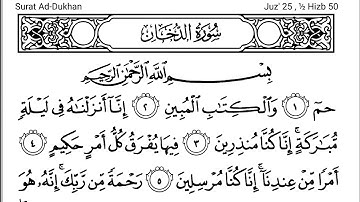 Surat Ad-Dukhan Juz' 25 , ½ Hizb 50
سُورَةُ الدُّخَانِ
بِسْمِ اللَّهِ الرَّحْمَٰنِ الرَّحِيمِ
حمٓ ١ وَالْكِتَابِ الْمُبِينِ ٢ إِنَّا أَنزَلْنَاهُ فِي لَيْلَةٍ
مُّبَارَكَةٍ ۚ إِنَّا كُنَّا مُنذِرِينَ ٣ فِيهَا يُفْرَقُ كُلُّ أَمْرٍ حَكِيمٍ ٤
أَمْرًا مِّنْ عِندِنَا ۚ إِنَّا كُنَّا مُرْسِلِينَ ٥ رَحْمَةً مِّن رَّبِّكَ ۚ إِنَّهُ هُوَ